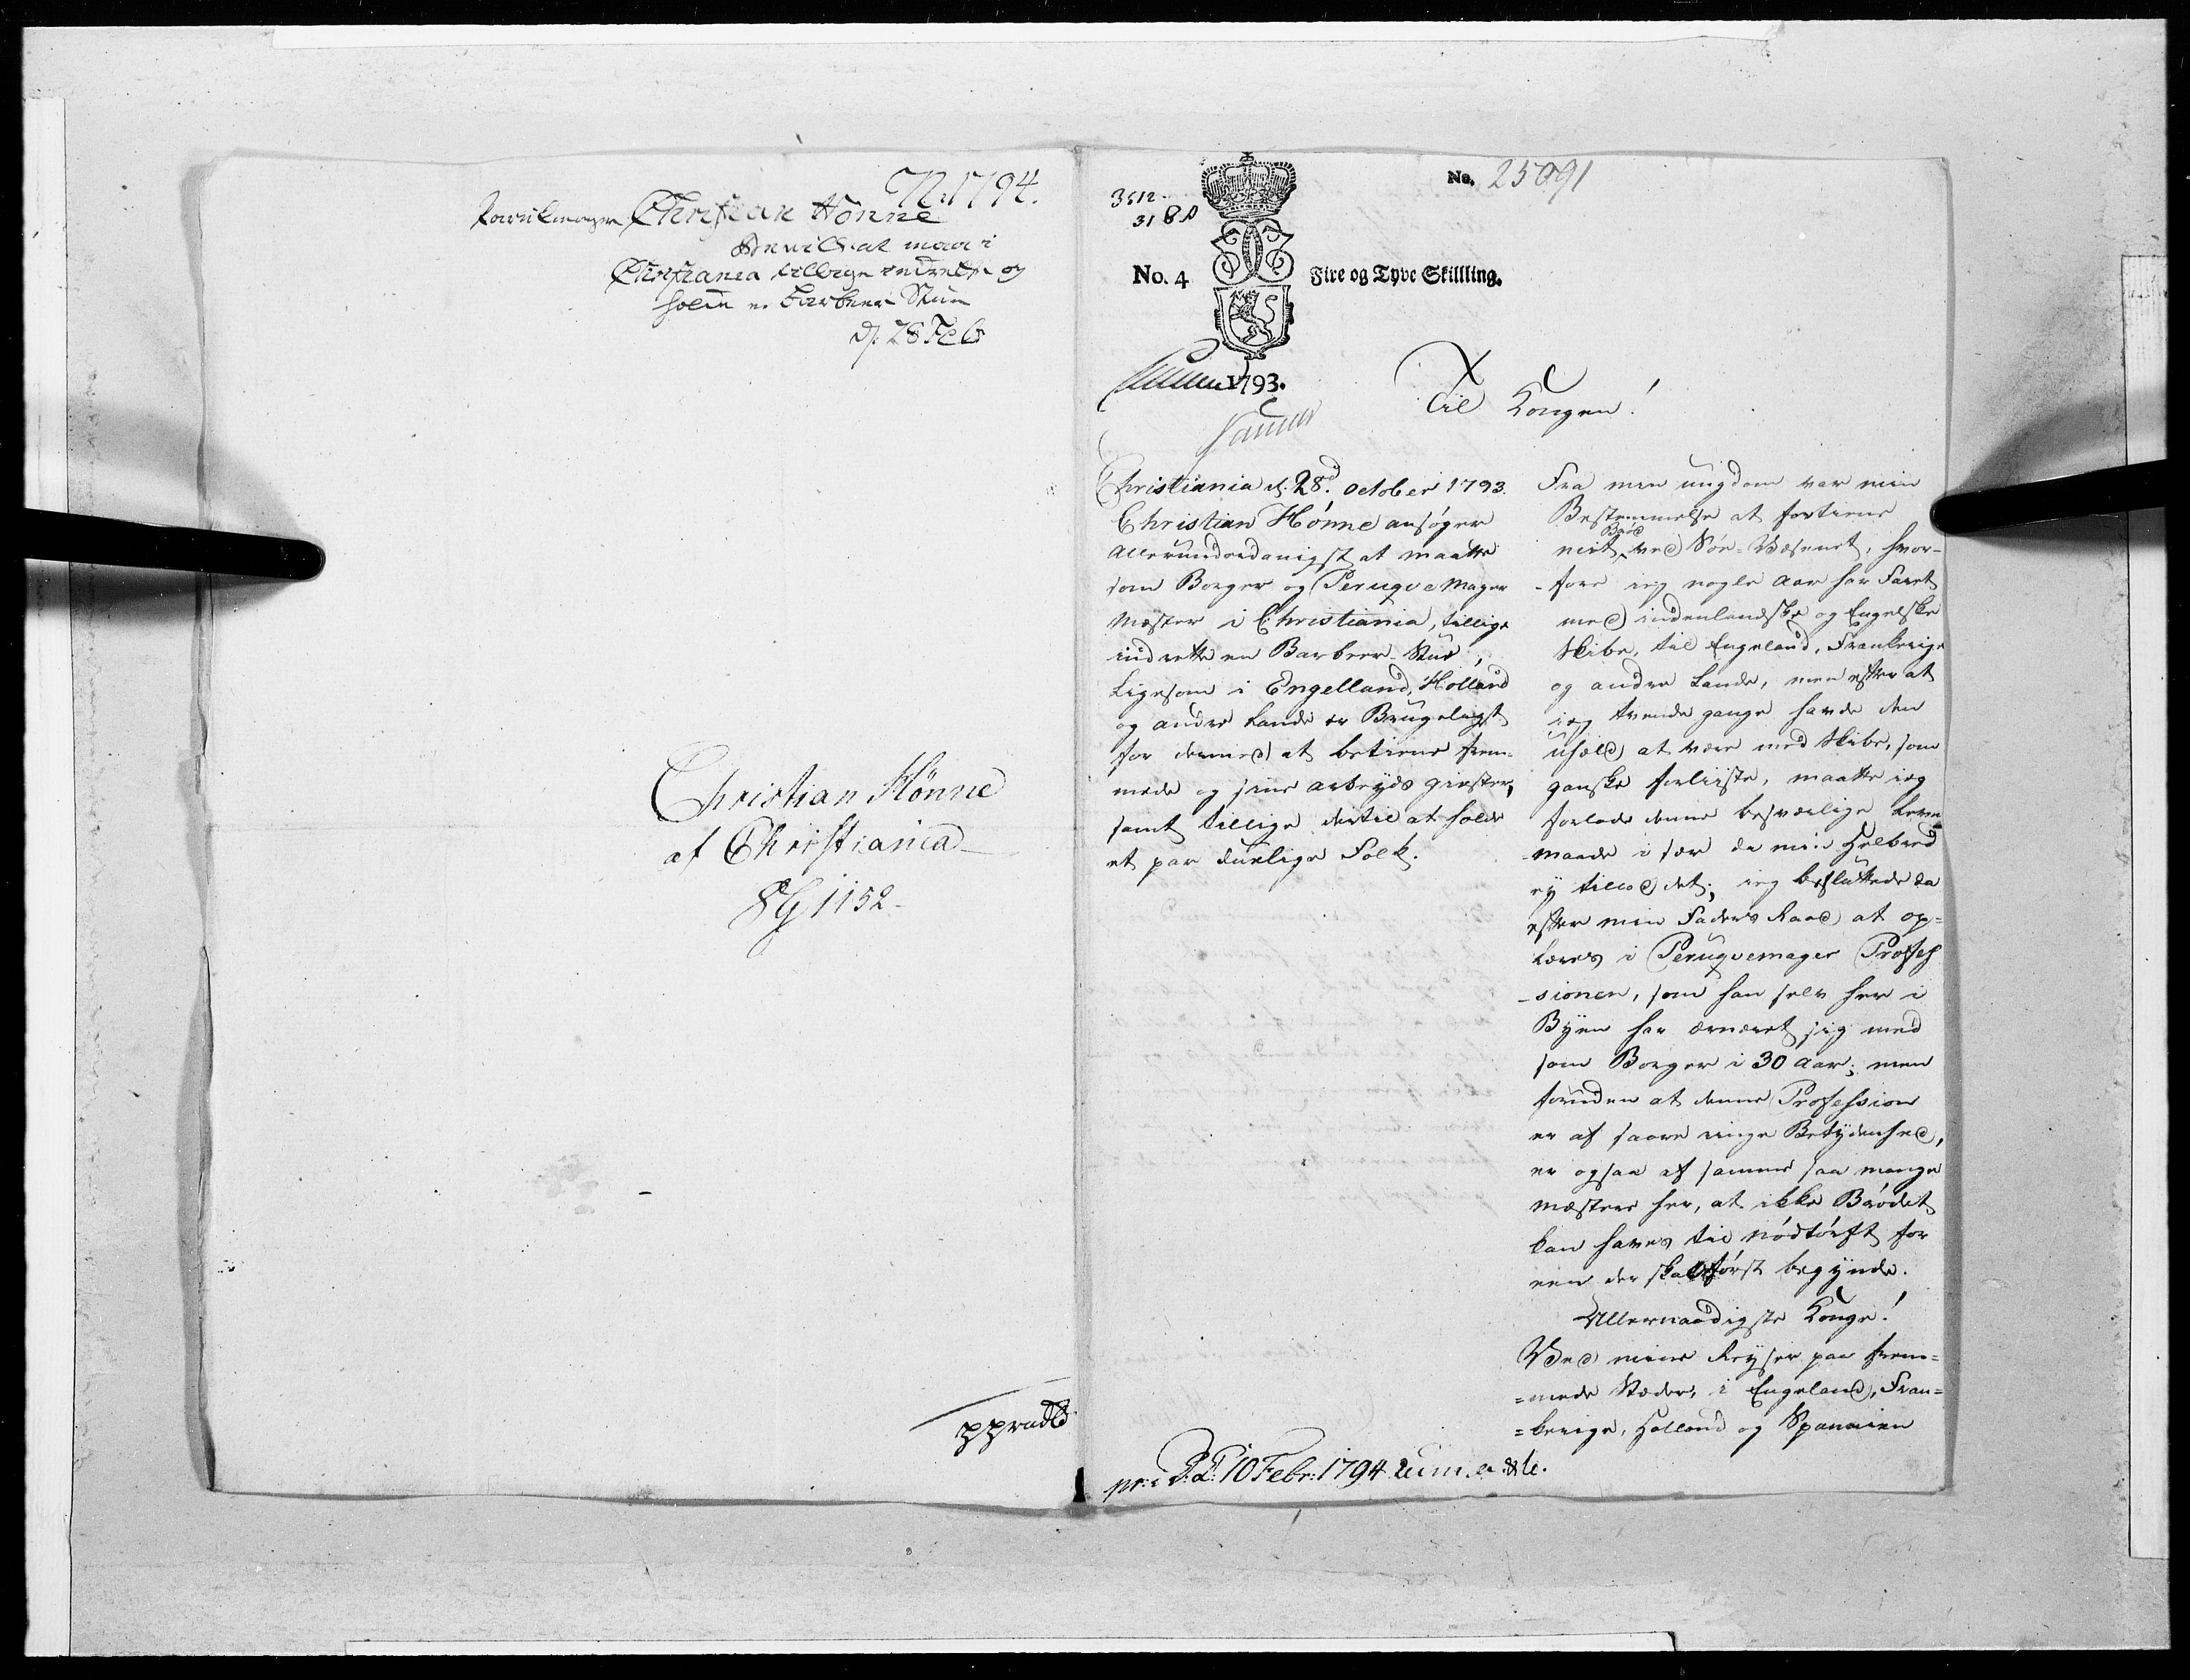 N: 1794.
Parukmager Christian Hønne
Bevill: at maa i
Christiania tillige indrette og
holde en Barbeer Stue
d: 28 Feb
Christian Hønne
af Christiania
1152
No. 25091
3512.
318
No. 4
Fire og Tyve Skillling.
1793.
Til Kongen!
Christiania d. 28d. October 1793.
Christian Hønne ansøger
allerunderdanigst at maatte
som Borger og Peruqvemager
Mæster i Christiania, tillige
indrette en Barbeer-Stue,
Ligesom i Engelland, Holland
og andre Lande er Brugeligt
for dermed at betiene frem-
mede og sine arbeyds giester,
samt tillige dertil at holde
et par duelige Folk.
Fra min ungdom var min
Bestemmelse at fortiene
mit Brød ved Søe-Væsenet, hvor-
-fore ieg nogle Aar har faret
med indenlandske og Engelske
Skibe, til Engeland, Frankerige
og andre Lande, men efter at
ieg trende gange havde den
uheld at være med Skibe, som
ganske forliiste, maatte ieg
forlade denne besværlige Leve
-maade i sær da min Helbred
ey tillod det; ieg besluttede da
efter min Faders Raad at op-
læres i Peruqvemager Profes
-sionen, som han selv her i
Byen har ernæret sig med
som Borger i 30 Aar; men
foruden at denne Profession
er af saare ringe Betydenhed,
er ogsaa af samme saa mange
Mæstere her, at ikke Brødet
kan haves til nødtørft for
een der skal først begynde.
Allernaadigste Konge!
Ved mine Reyser paa frem=
=mede Stæder, i Engeland, Fran=
=kerige, Holland og Spannien
pr: i D: C: 10 Febr: 1794